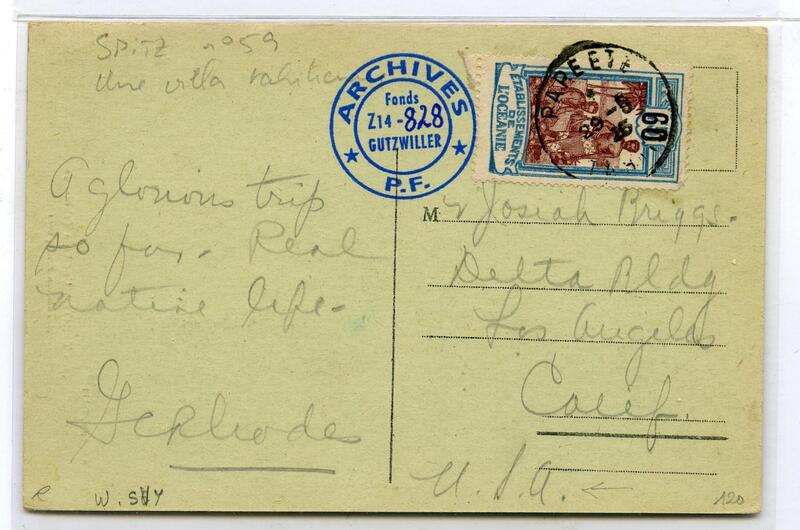 SPITZ n° 59
Une villa tahitienne
ARCHIVES
Fonds
Z14-828
GUTZWILLER
P.F.
ÉTABLISSEMENTS
DE
L'OCÉANIE
60
PAPEETE
A glorious trip
so far. Real
native life.
G E Rhodes
M r Josiah Briggs.
Delta Bldg
Los Angeles
Calif.
U.S.A.
R
W. SHY
120